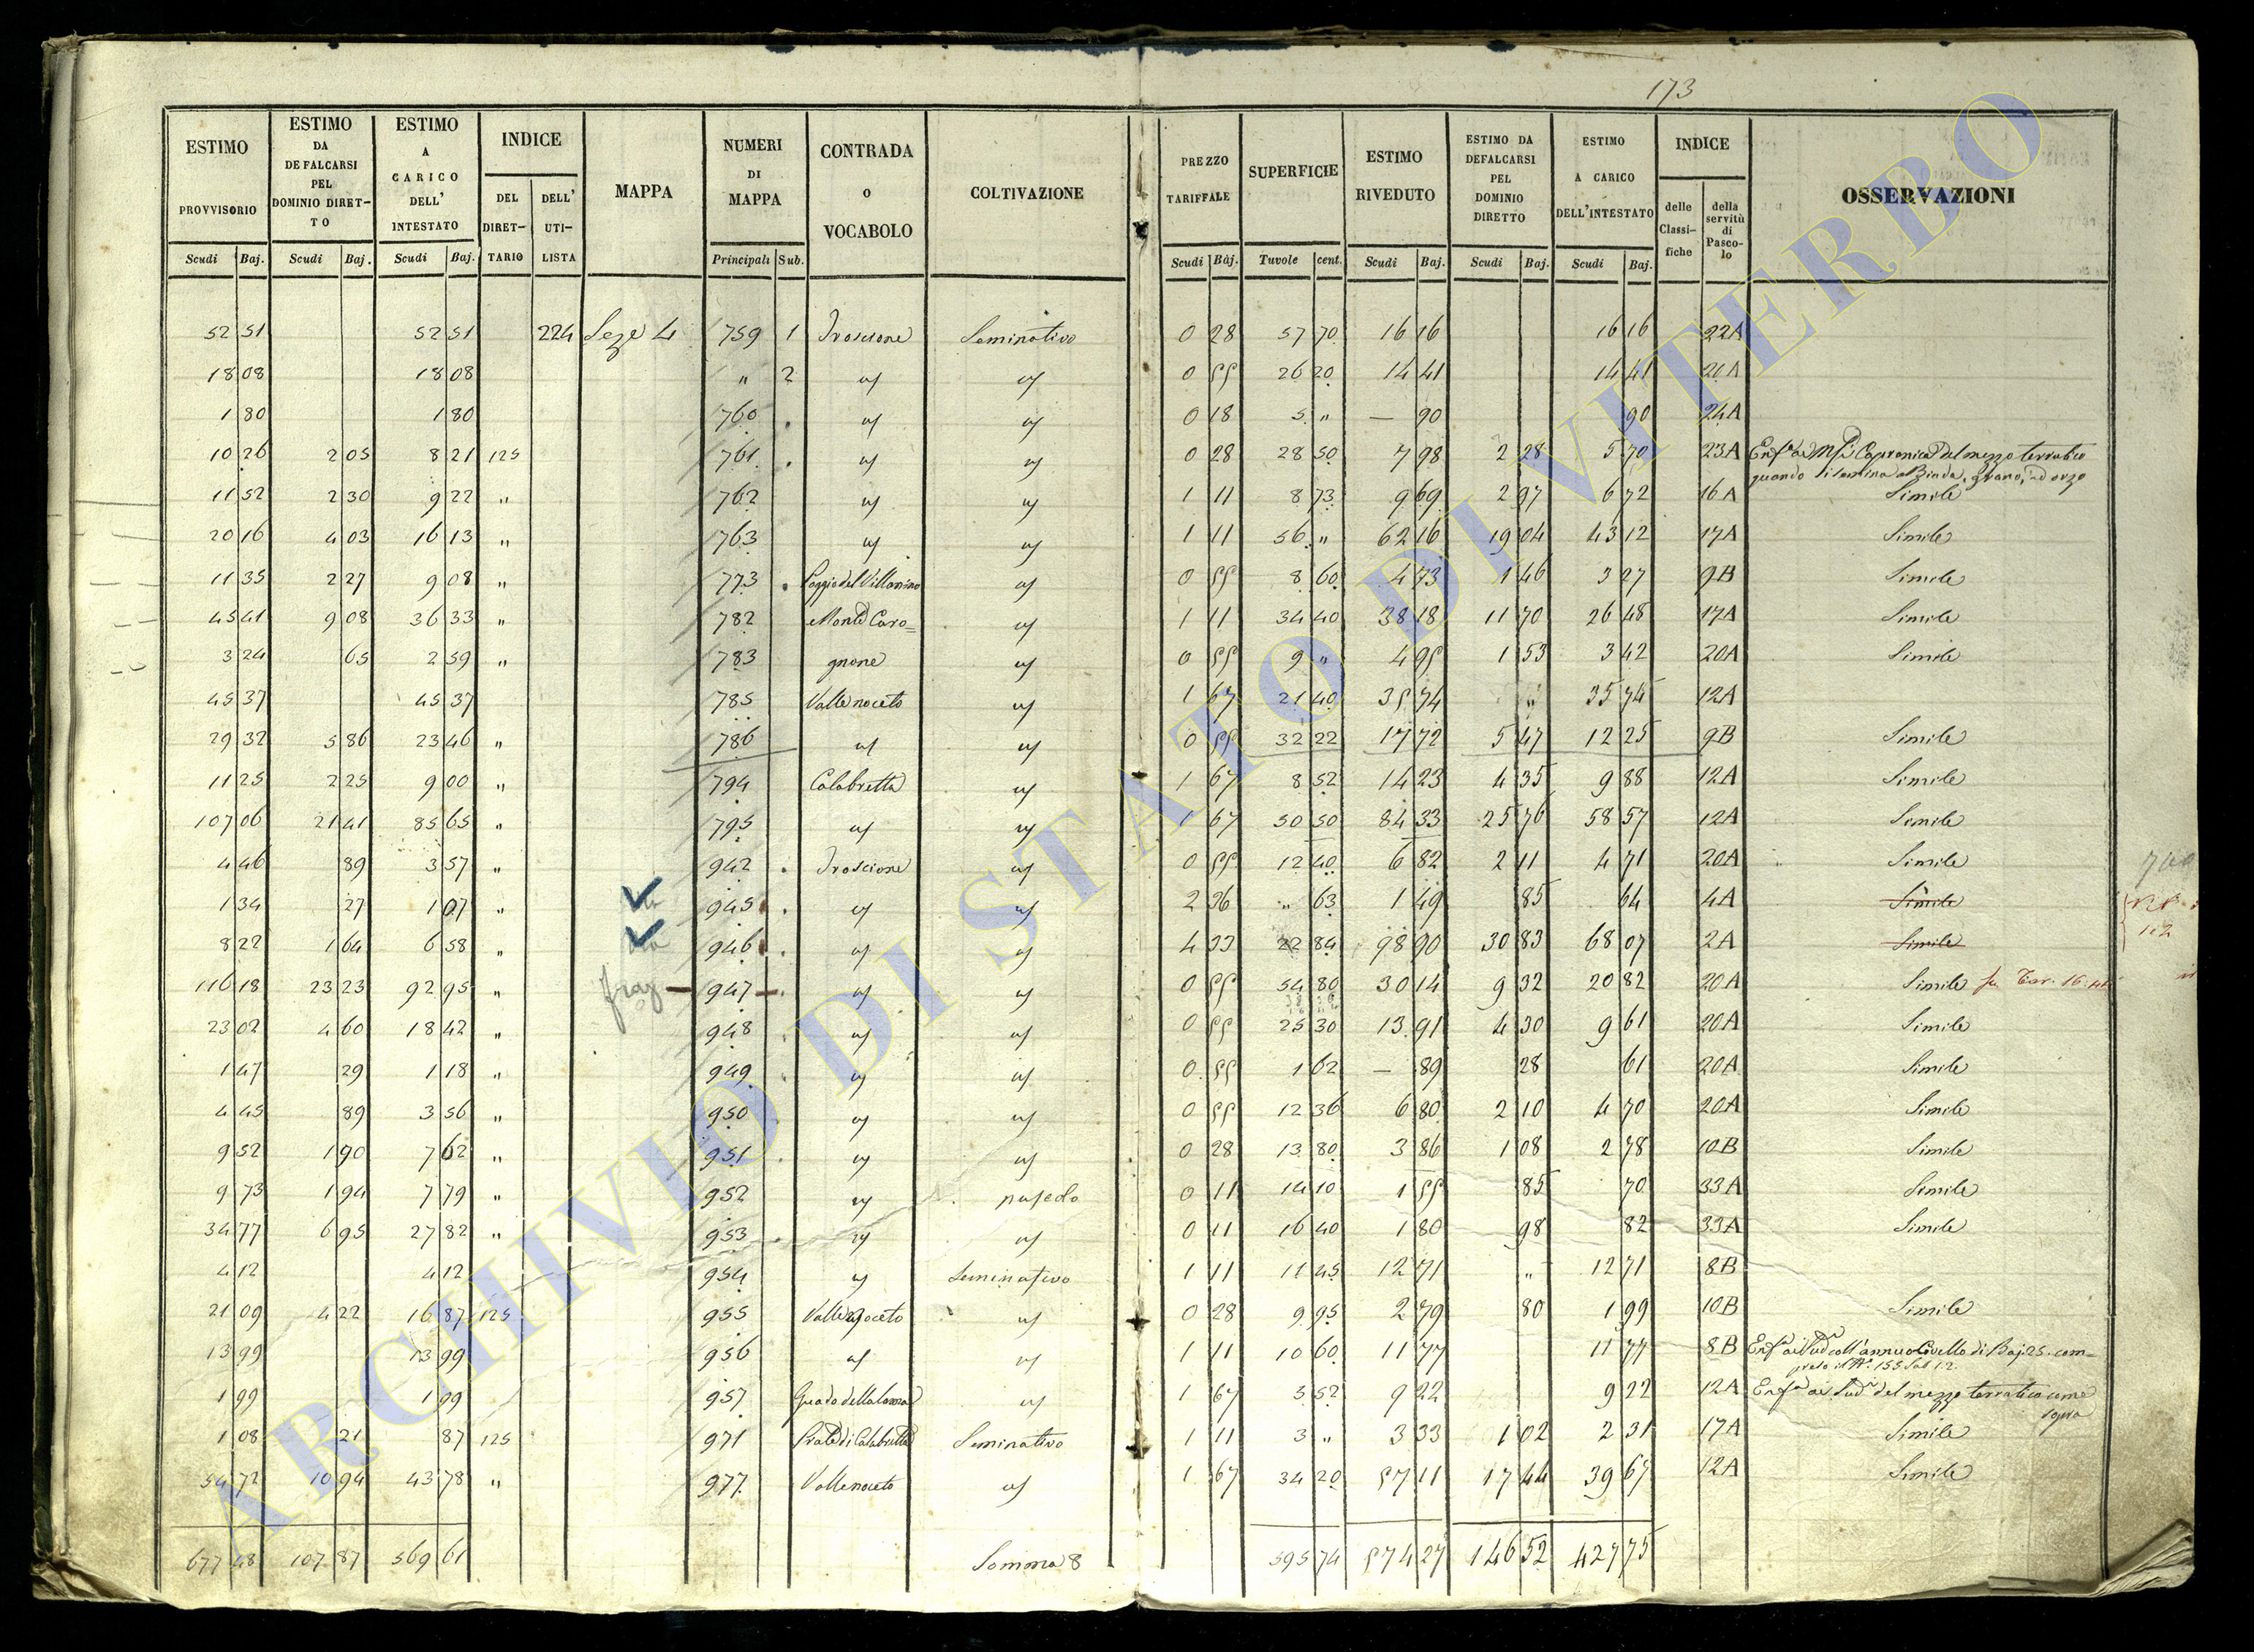 173
ESTIMO PROVVISORIO Scudi Baj. | ESTIMO DA DEFALCARSI PEL DOMINIO DIRETTO Scudi Baj. | ESTIMO A CARICO DELL' INTESTATO Scudi Baj. | INDICE DEL DIRETTARIO DELL' UTILISTA | MAPPA | NUMERI DI MAPPA Principali Sub. | CONTRADA O VOCABOLO | COLTIVAZIONE | PREZZO TARIFFALE Scudi Baj. | SUPERFICIE Tavole cent. | ESTIMO RIVEDUTO Scudi Baj. | ESTIMO DA DEFALCARSI PEL DOMINIO DIRETTO Scudi Baj. | ESTIMO A CARICO DELL'INTESTATO Scudi Baj. | INDICE delle Classifiche della servitù di Pascolo | OSSERVAZIONI
52 51 52 51 224 Seze 4 759 1 Troscione Seminativo 0 28 57 70 16 16 16 16 22A
18 08 18 08 " 2 0 55 26 20 14 41 14 41 20A
1 80 1 80 760 0 18 5 " — 90 90 24A
10 26 2 05 8 21 125 761 0 28 28 50 7 98 2 28 5 70 23A Capronica del mezzo terratico
quando si semina a Biada, grano, ed orzo
11 52 2 30 9 22 " 762 1 11 8 73 9 69 2 97 6 72 16A Simile
20 16 4 03 16 13 " 763 1 11 56 " 62 16 19 04 43 12 17A Simile
11 35 2 27 9 08 " 773 Poggio del Villanino 0 55 8 60 4 73 1 46 3 27 9B Simile
45 41 9 08 36 33 " 782 Monte Caro= 1 11 34 40 38 18 11 70 26 48 17A Simile
3 24 65 2 59 " 783 gnone 0 55 9 " 4 95 1 53 3 42 20A Simile
45 37 45 37 785 Valle noceto 1 67 21 40 35 74 " 35 74 12A
29 32 5 86 23 46 " 786 0 55 32 22 17 72 5 47 12 25 9B Simile
11 25 2 25 9 00 " 794 Calabretta 1 67 8 52 14 23 4 35 9 88 12A Simile
107 06 21 41 85 65 " 795 1 67 50 50 84 33 25 76 58 57 12A Simile
4 46 89 3 57 " 942 Troscione 0 55 12 40 6 82 2 11 4 71 20A Simile
1 34 27 1 07 " 945 2 36 " 63 1 49 85 64 4A Simile
8 22 1 64 6 58 " 946 4 33 22 84 98 90 30 83 68 07 2A Simile
116 18 23 23 92 95 " fraz 947 0 55 54 80 30 14 9 32 20 82 20A Simile
23 02 4 60 18 42 " 948 0 55 25 30 13 91 4 30 9 61 20A Simile
1 47 29 1 18 " 949 0 55 1 62 — 89 28 61 20A Simile
4 45 89 3 56 " 950 0 55 12 36 6 80 2 10 4 70 20A Simile
9 52 1 90 7 62 " 951 0 28 13 80 3 86 1 08 2 78 10B Simile
9 73 1 94 7 79 " 952 pascolo 0 11 14 10 1 55 85 70 33A Simile
34 77 6 95 27 82 " 953 0 11 16 40 1 80 98 82 33A Simile
4 12 4 12 954 Seminativo 1 11 11 45 12 71 " 12 71 8B
21 09 4 22 16 87 125 955 Valle noceto 0 28 9 95 2 79 80 1 99 10B Simile
13 99 13 99 956 1 11 10 60 11 77 11 77 8B coll'annuo Livello di Baj. 25. com=
preso il N. 155 Sub 12.
1 99 1 99 957 Guado della 1 67 5 52 9 22 9 22 12A del mezzo terratico come
sopra
1 08 21 87 125 971 Prate di Calabretta Seminativo 1 11 3 " 3 33 1 02 2 31 17A Simile
54 72 10 94 43 78 " 977 Valle noceto 1 67 34 20 57 11 17 44 39 67 12A Simile
677 48 107 87 569 61 Somma 8 595 74 574 27 146 52 427 75
ARCHIVIO DI STATO DI VITERBO